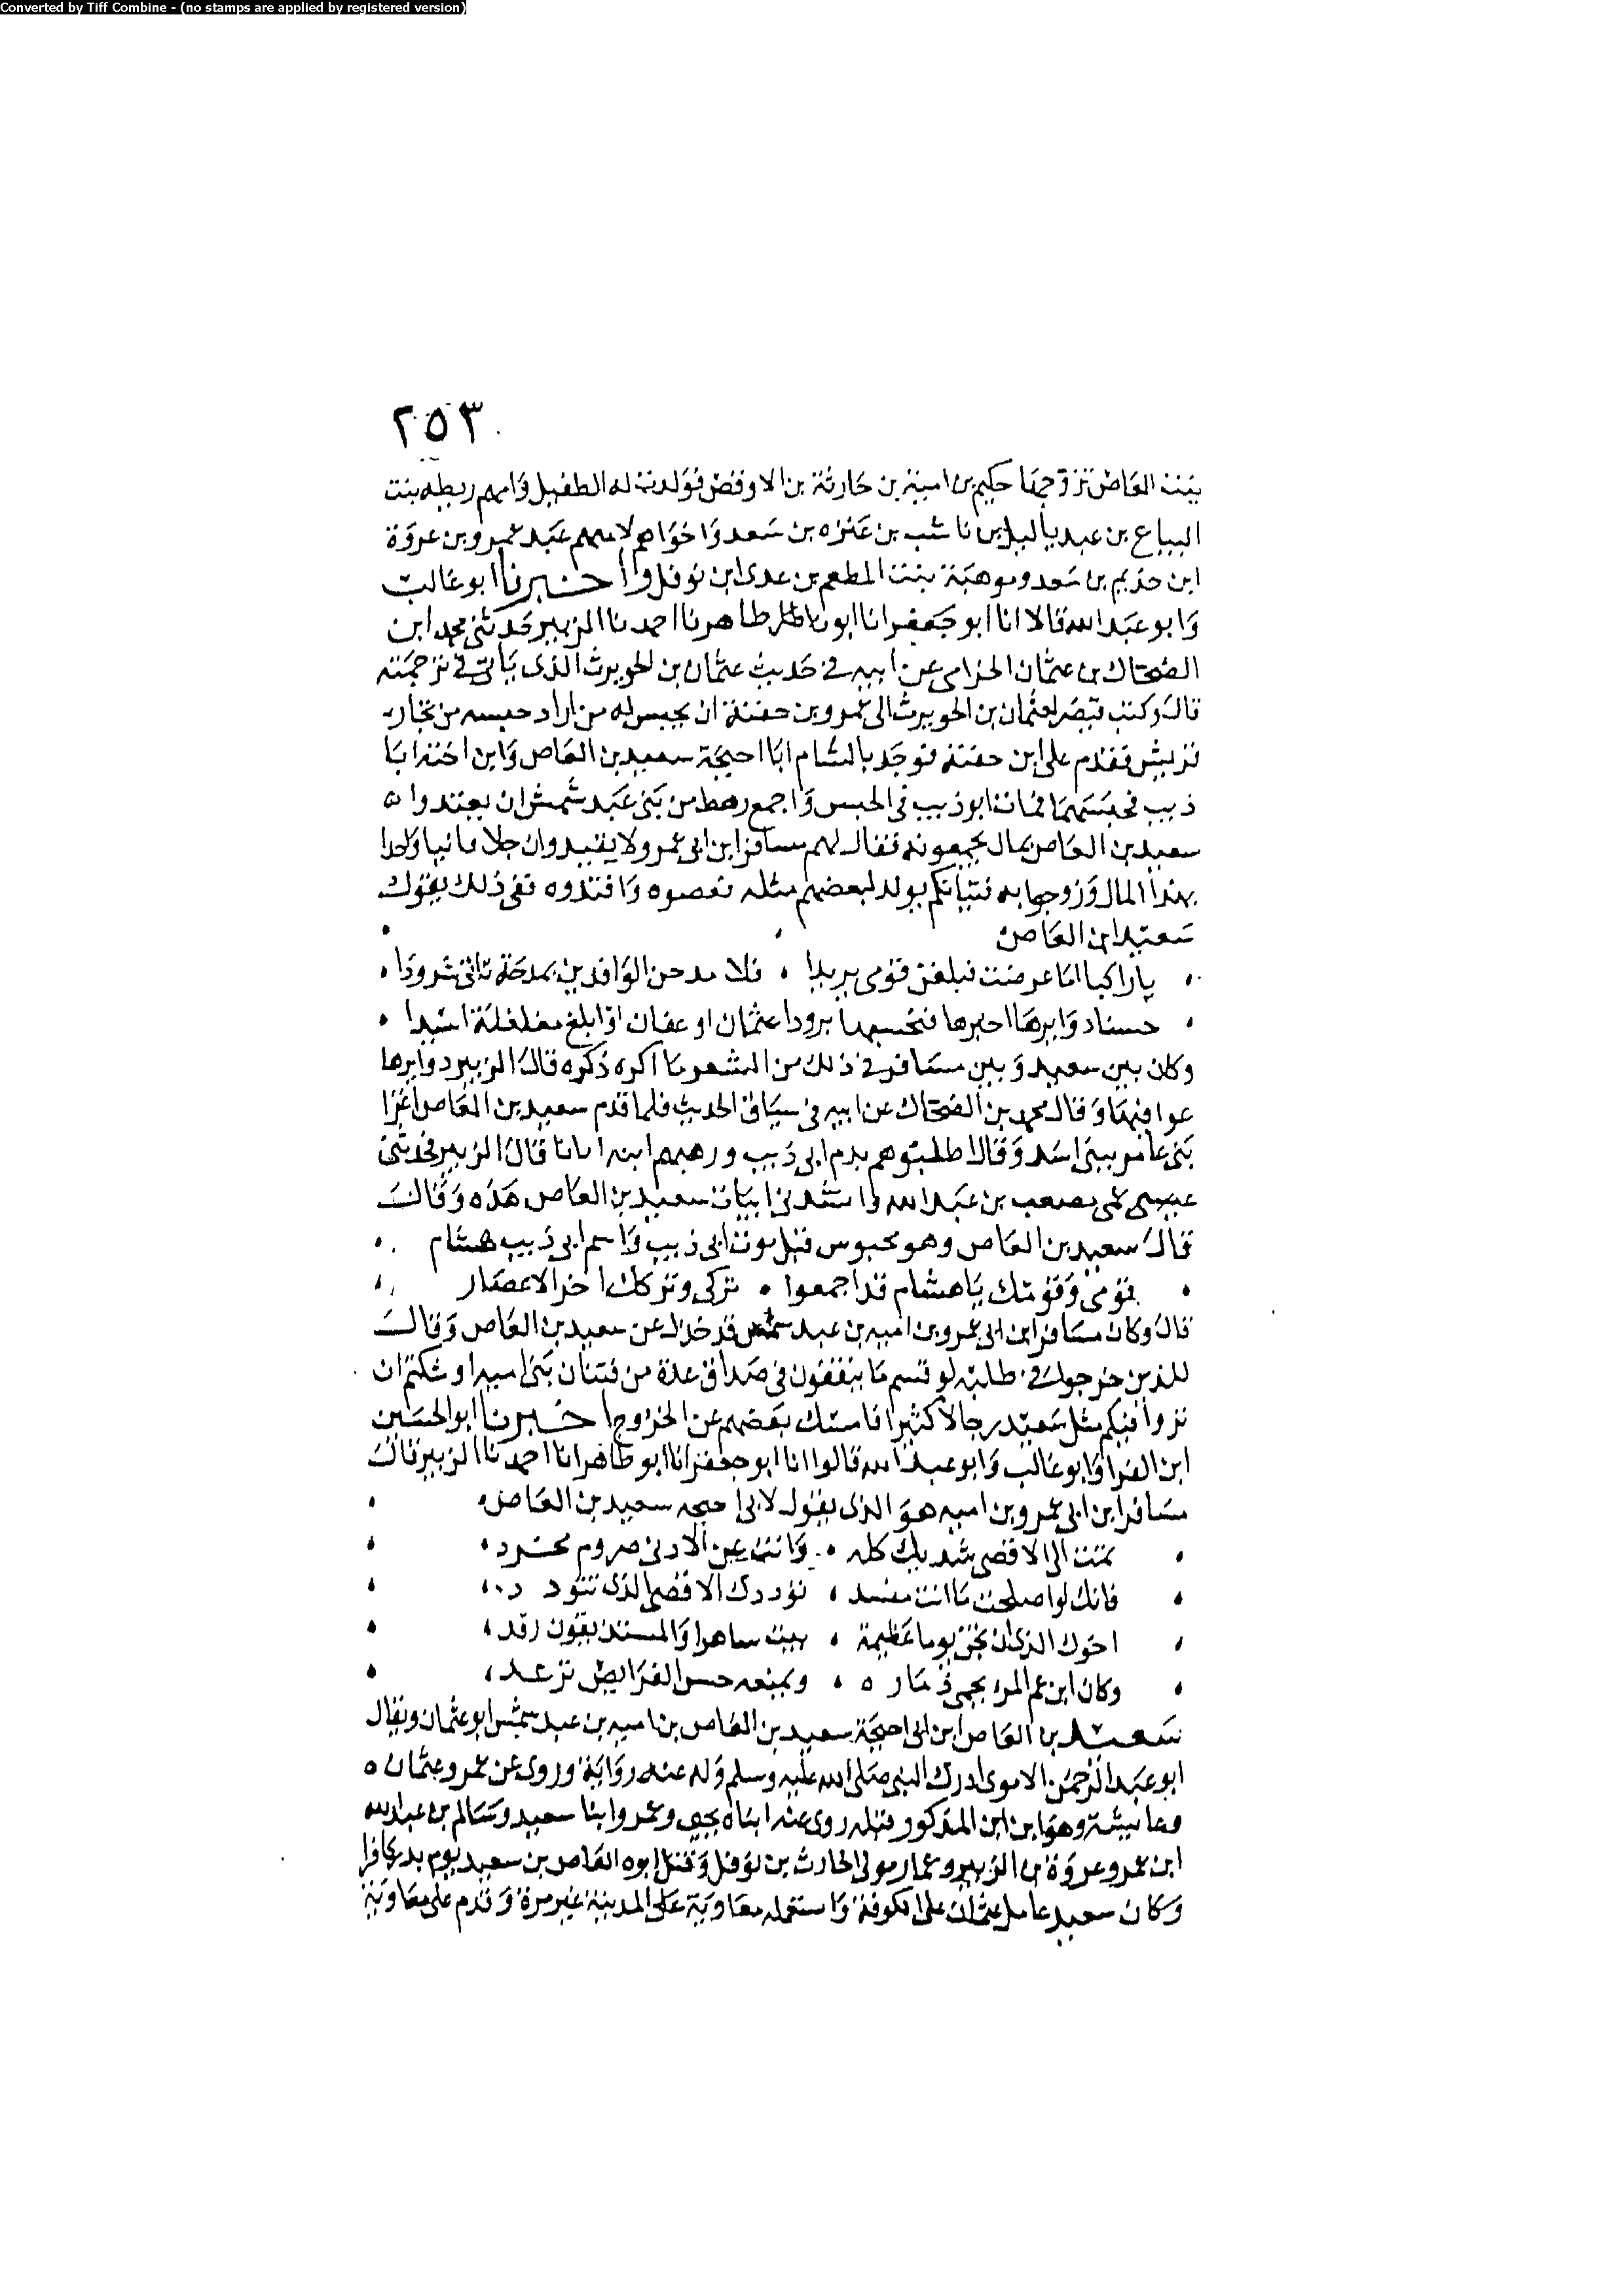 Converted by Tiff Combine - (no stamps are applied by registered version)
٢٥٣
بنت العاص تزوجها حكيم بن امية بن حارثة بن الاوقص فولدت له الطفيل وامهم ريطه بنت
البياع بن عبد ياليل بن ناشب بن عنزه بن سعد واخواهم لامهم عبد عمرو بن عروة
ابن حذيم بن سعد وموهبة بنت المطعم بن عدى ابن نوفل واخبرنا ابو غالب
وابو عبد الله قالا انا ابو جعفر انا ابو طاهر نا احمد نا الزبير حدثني محمد ابن
الضحاك بن عثمان الحزامى عن ابيه فى حديث عثمان بن الحويرث الذى ياتى فى ترجمته
قال وكتب قيصر لعثمان بن الحويرث الى عمرو بن جفنة ان يحبس له من اراد حبسه من تجار
قريش فقدم على ابن جفنة فوجد بالشام ابا احيحة سعيد بن العاص وابن اخته ابا
ذيب فحبسهما فمات ابو ذيب فى الحبس واجمع رهط من بنى عبد شمس ان يفتدوا
سعيد بن العاص بمال يجمعونه فقال لهم مسافر ابن ابى عمرو لا
بهذا المال وزوجوا به فتيانكم يولد لبعضهم مثله فعصوه وافتدوه ففى ذلك يقول
سعيد ابن العاص
يا راكبا اما عرضت فبلغن قومى بريدا فلا مدحن الوافدين بمدحة تاتى شرودا
عثمان او عفان او ابلغ مغلغلة اسيدا
وكان بين سعيد وبين مسافر فى ذلك من الشعر ما اكره ذكره قال الزبير دوابرها
عواقبها وقال محمد بن الضحاك عن ابيه فى سياق الحديث فلما قدم سعيد بن العاص اغرا
بنى عامر ببنى اسد وقال اطلبوهم بدم ابى ذيب ورهنهم ابنه ابانا قال الزبير فحدثنى
عمى مصعب بن عبد الله وانشدنى ابيات سعيد بن العاص هذه وقال
قال سعيد بن العاص وهو محبوس قبل موت ابى ذيب واسم ابى ذيب هشام
قومى وقومك يا هشام قد اجمعوا تركى وتركك اخر الاعصار
قال وكان مسافر ابن ابى عمرو بن اميه بن عبد شمس قد خذل عن سعيد بن العاص وقال
للذين خرجوا فى طلبه لو قسم ما ينفقون فى صداق عدة من فتيان بنى اميه اوشكتم ان
تروا فيكم مثل سعيد رجالا كثيرا فامسك بعضهم عن الخروج اخبرنا ابو الحسين
ابن الفرا وابو غالب وابو عبد الله قالوا انا ابو جعفر انا ابو طاهر انا احمد نا الزبير قال
مسافر ابن ابى عمرو بن اميه هو الذى يقول لابى احيحه سعيد بن العاص
تمت الى الاقصى بثديك كله وانت عن الادنى صروم مجدد
فانك لو اصلحت ما انت مفسد توددك الاقصى الذى تتودد
اخوك الذى ان تجن يوما عظيمة يبيت ساهرا والمستذيقون رقد
وكان ابن عم المرء يحمى ذماره ويمنعه حين الفرايص ترعد
سعيد بن العاص ابن ابى احيحة سعيد بن العاص بن اميه بن عبد شمس ابو عثمان ويقال
ابو عبد الرحمن الاموى ادرك النبى صلى الله عليه وسلم وله عنه رواية وروى عن عمر وعثمان
وعايشة وهو ابن ابن المذكور قبله روى عنه ابناه يحيى وعمرو ابنا سعيد وسالم بن عبد الله
ابن عمر وعروة بن الزبير وعمار مولى الحارث بن نوفل وقتل ابوه العاص بن سعيد يوم بدر كافرا
وكان سعيد عامل عثمان على الكوفة واستعمله معاوية على المدينة غير مرة وقدم على معاوية